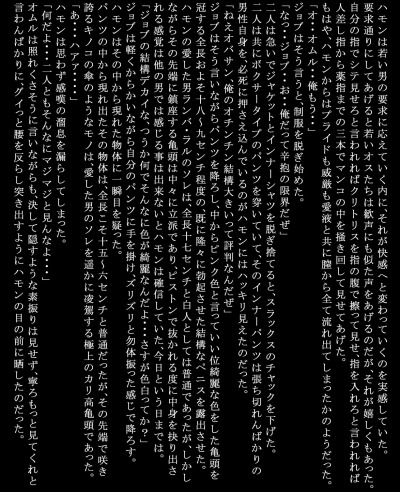 ハモンは若い男の要求に応えていく内に、それが快感へと変わっていくのを実感していた。
要求通りにしてあげると若いオスたちは歓声にも似た声をあげるのだが、それが嬉しくもあった。
自分の指でシテ見せろと言われればクリトリスを指の腹で擦って見せ、指を入れろと言われれば
人差し指から薬指までの三本でマンコの中を掻き回して見せてあげた。
もはや、ハモンからはプライドも威厳も愛液と共に膣から全て流れ出てしまったかのようだった。
「オ・・オムル・・俺もう・・」
ジョブはそう言うと、制服を脱ぎ始めた。
「なっ・・ジョブ・・お・・俺だって辛抱の限界だぜ」
二人は急いでジャケットとインナーシャツを脱ぎ捨てると、スラックスのチャックを下げた。
二人は共にボクサータイプのパンツを穿いていて、そのインナーパンツは張ち切れんばかりの
男性自身を、必死に押さえ込んでいるのが、ハモンにはハッキリ見えたのだった。
「ねえオバサン、俺のオチンチン結構大きいって評判なんだぜ」
ジョブはそう言いながらパンツを降ろし、中からピンク色と言っていい位綺麗な色をした亀頭を
冠する全長およそ十八～九センチ程度の、既に隆々に勃起させた結構なペニスを露出させた。
ハモンの愛した男ランバ・ラルのソレは、全長十七センチと白人としては普通であったが、しかし
ながらその先端に鎮座する亀頭は中々に立派であり、ピストンで抜かれる度に中身を抉り出さ
れる感覚は他の男では感じる事は出来ないとハモンは確信していた、今日という日までは。
「ジョブの結構デカイな、つうか何でそんなに色が綺麗なんだよ・・さすが色白ってか？」
ジョブは軽くからかいながら自分のパンツに手を掛け、ズリズリと勿体振った感じで降ろす。
ハモンはその中から現れた物体に一瞬目を疑った。
パンツの中から現れ出たその物体は、全長こそ十五～六センチと普通だったが、その先端で咲き
誇るキノコの傘のようなモノは、愛した男のソレを遥かに凌駕する極上のカリ高亀頭であった。
「あ・・ハァア・・・」
ハモンは思わず感嘆の溜息を漏らしてしまった。
「何だよ・・二人ともそんなにマジマジと見んなよ・・・」
オムルは照れくさそうに言いながらも、決して隠すような素振りは見せず、寧ろもっと見てくれと
言わんばかりに、グイっと腰を反らし突き出すようにハモンの目の前に晒したのだった。